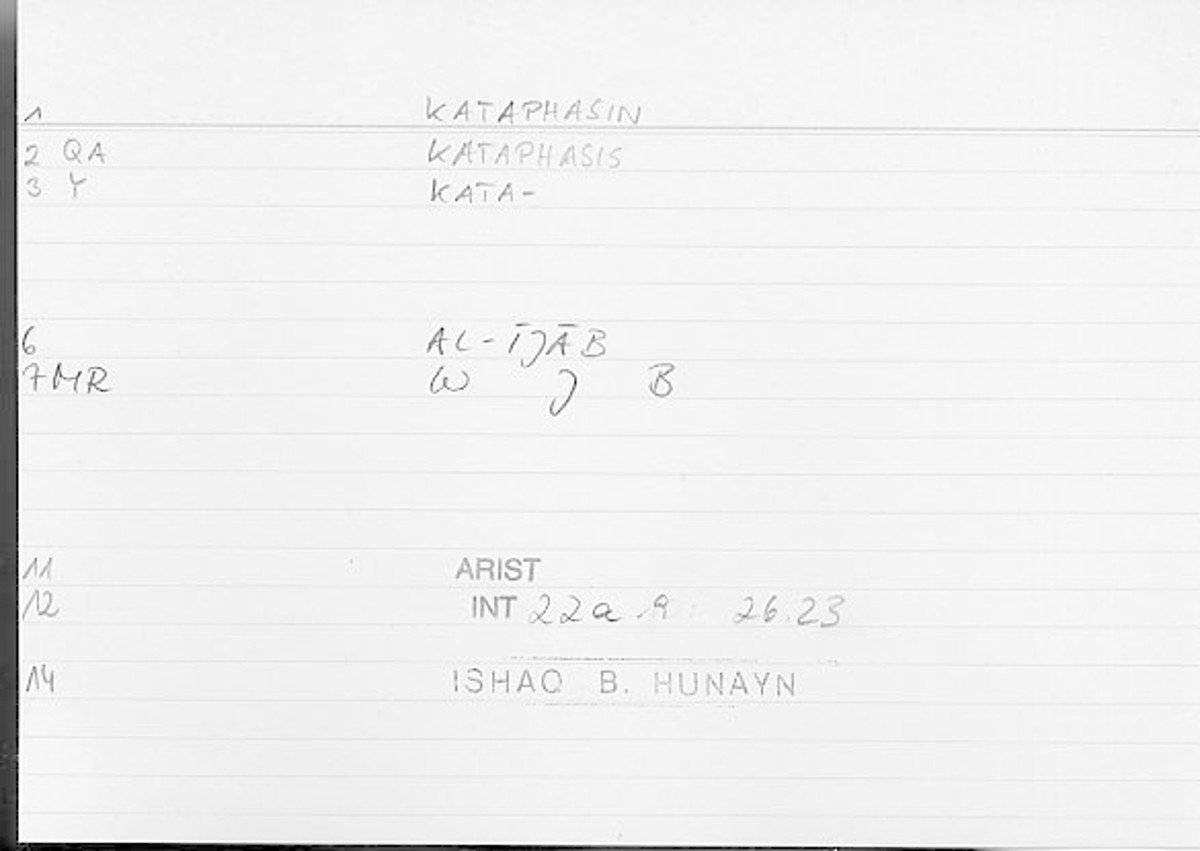 1 KATAPHASIN
2 QA KATAPHASIS
3 Y KATA-
6 AL-ĪJĀB
7 MR W J B
11 ARIST
12 INT 22a 9: 26.23
14 ISHAQ B. HUNAYN